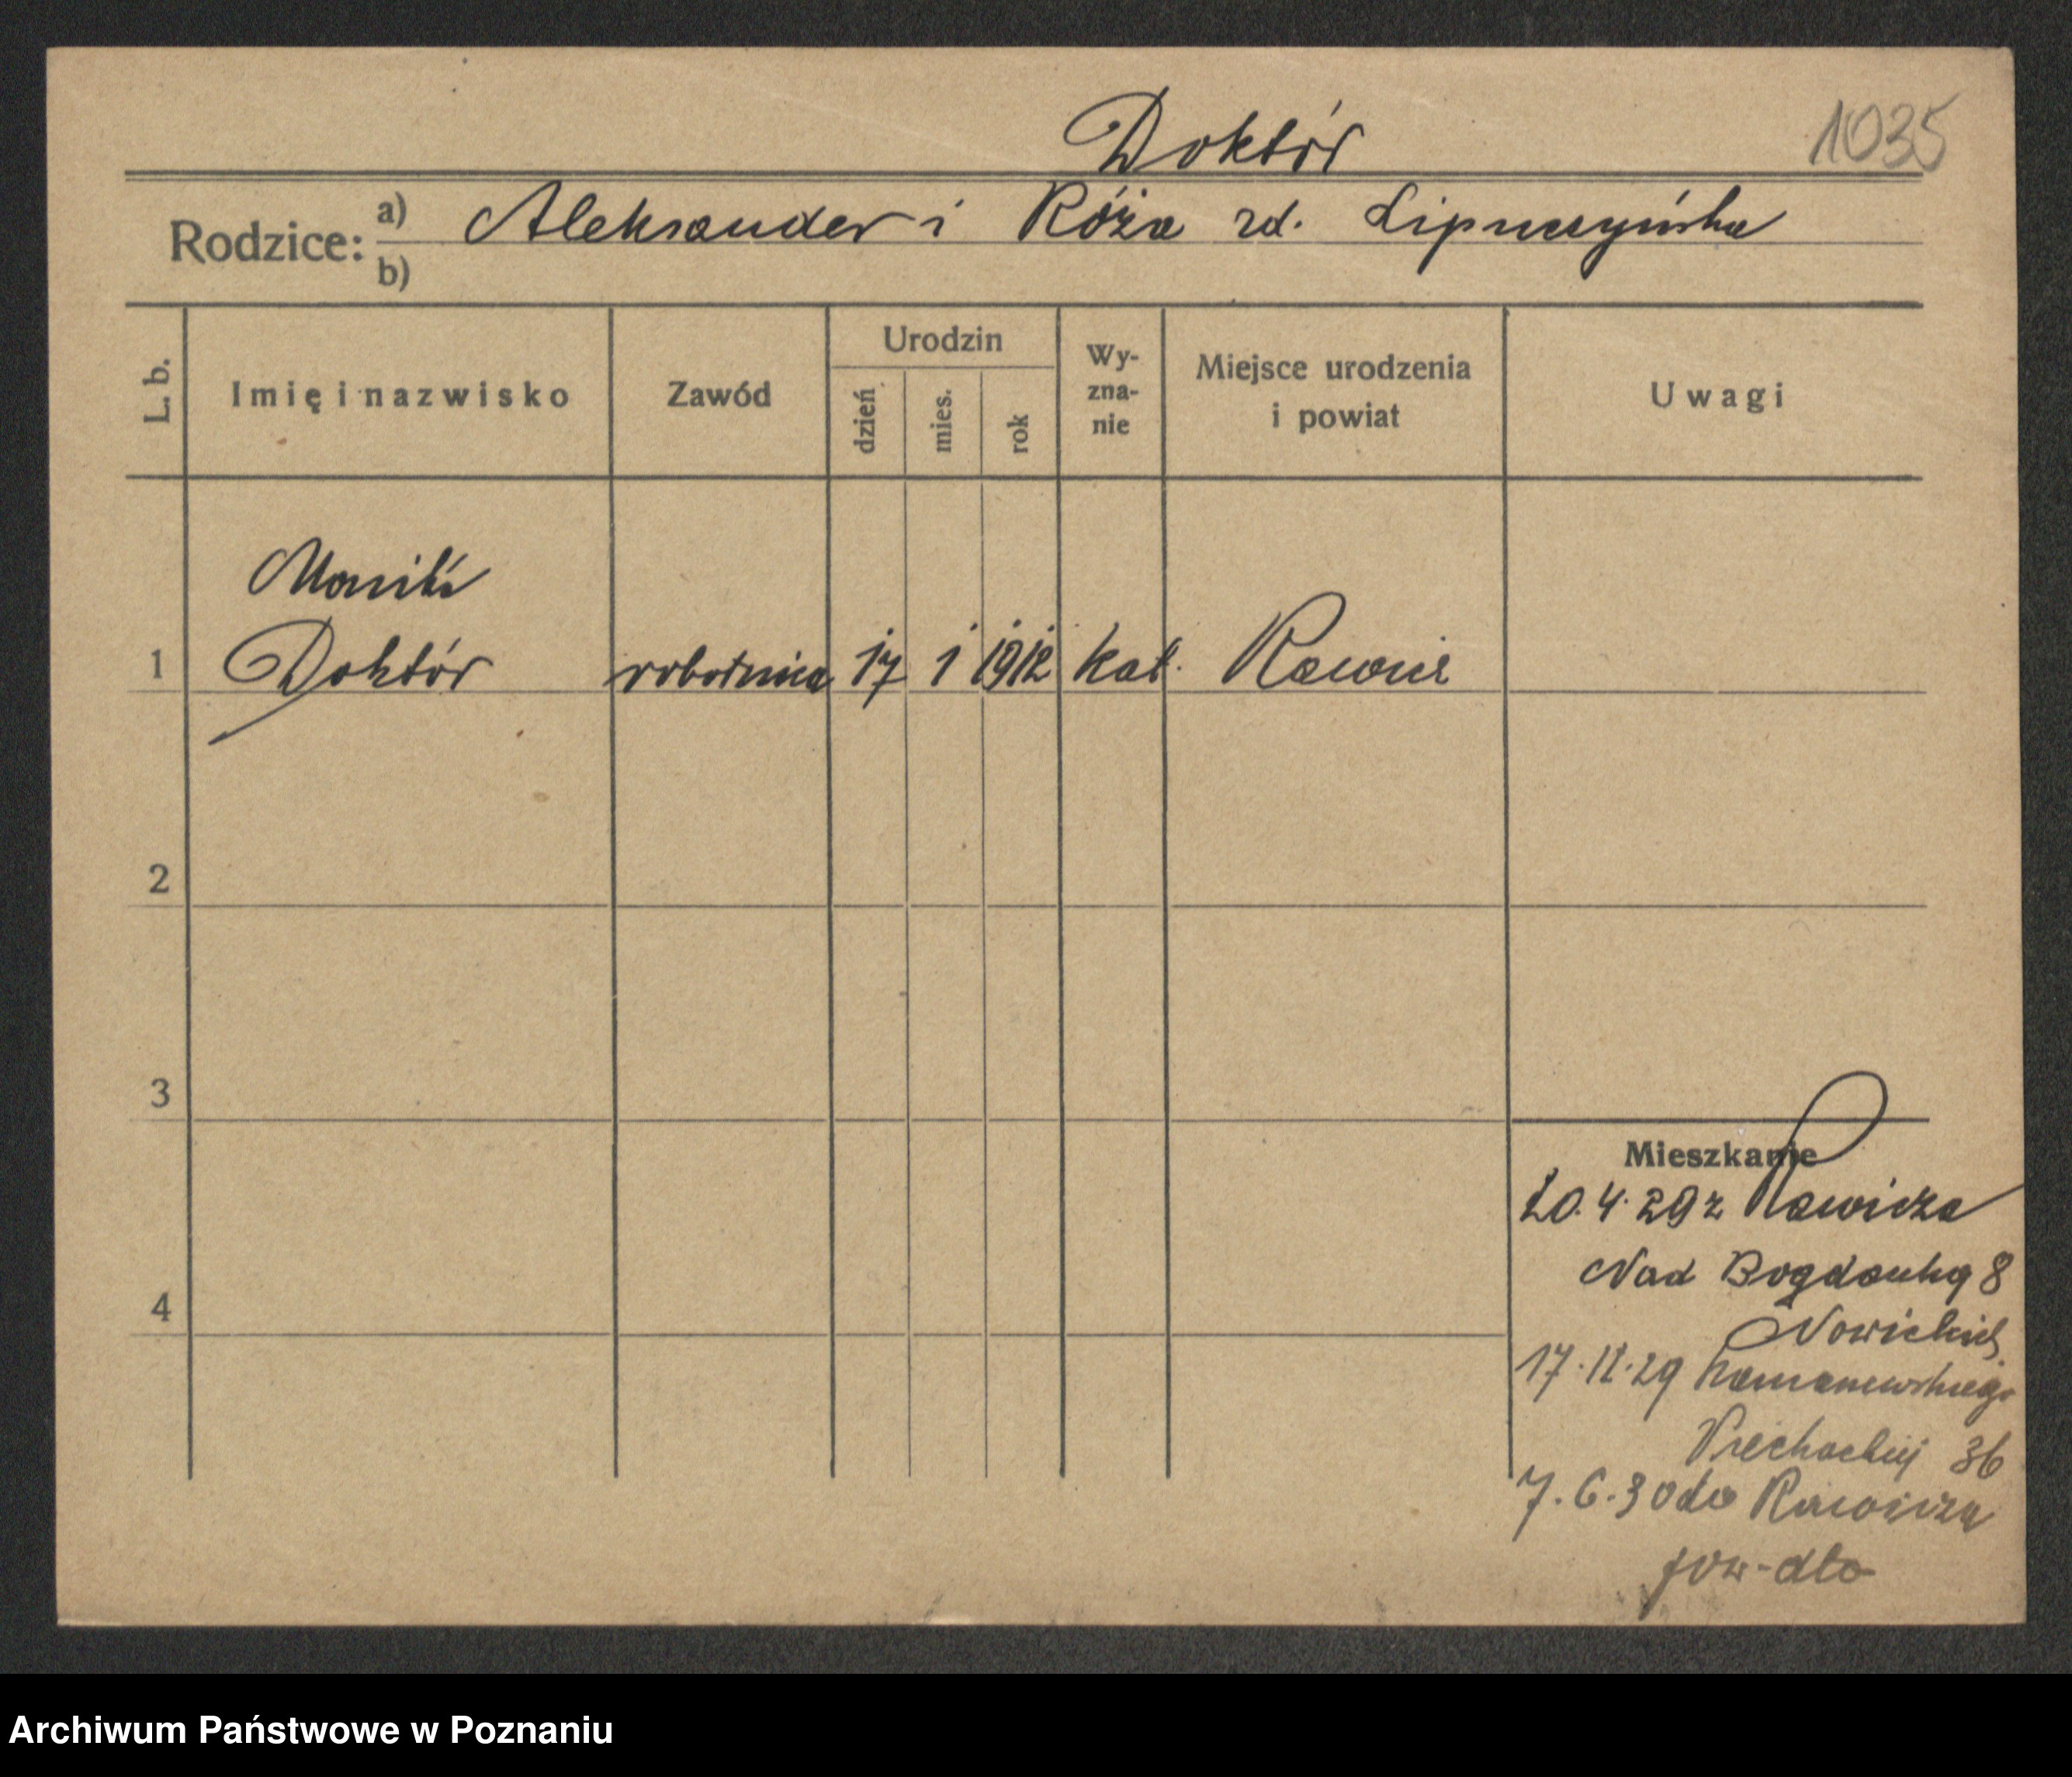 Doktór
1035
Rodzice: a) Aleksander i Róża zd.
b)
L. b.
Imię i nazwisko
Zawód
Urodzin
dzień
mies.
rok
Wy-
zna-
nie
Miejsce urodzenia
i powiat
Uwagi
1 Doktór robotnica 17 1 1912 kat. Rawicz
2
3
4
Mieszkanie
20.4.29 z Rawicza
Nad Bogdanką 8
Nowickich
17.12.29
36
7.6.30 do Rawicza
Archiwum Państwowe w Poznaniu